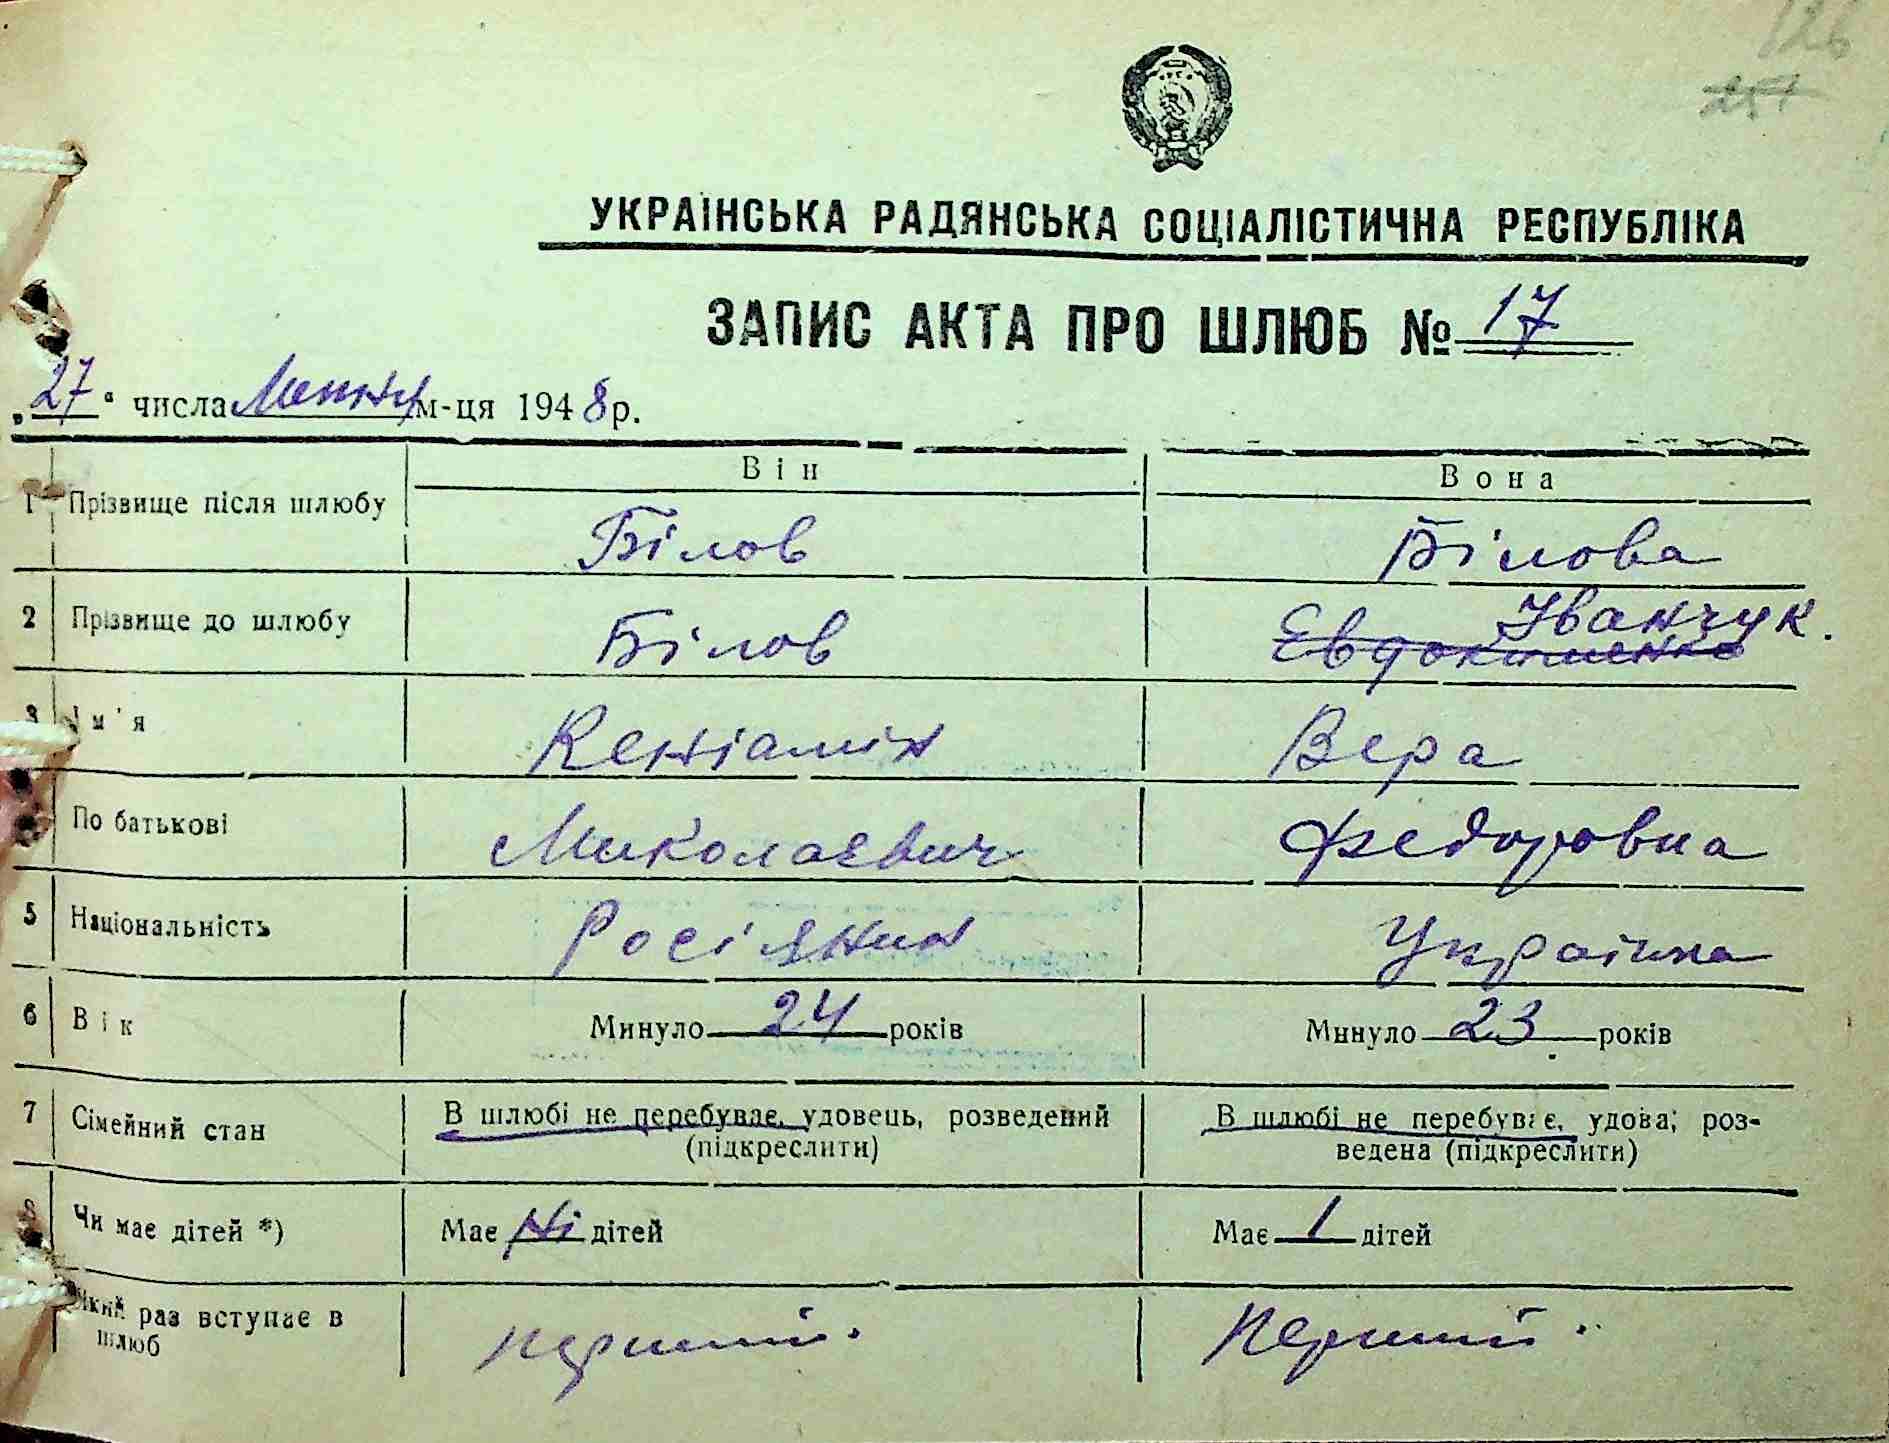 126
257
УКРАЇНСЬКА РАДЯНСЬКА СОЦІАЛІСТИЧНА РЕСПУБЛІКА
ЗАПИС АКТА ПРО ШЛЮБ № 17
„27“ числа Липня м-ця 1948 р.
Він Вона
1 Прізвище після шлюбу Білов Білова
2 Прізвище до шлюбу Білов Евдокименко Іванчук.
3 Ім'я Веніамін Вера
По батькові Миколаєвич Федоровна
5 Національність Росіянин Українка
6 Вік Минуло 24 років Минуло 23 років
7 Сімейний стан В шлюбі не перебуває, удовець, розведений (підкреслити) В шлюбі не перебуває, удова; роз-
ведена (підкреслити)
8 Чи має дітей *) Має Ні дітей Має 1 дітей
Який раз вступає в шлюб перший. Перший.